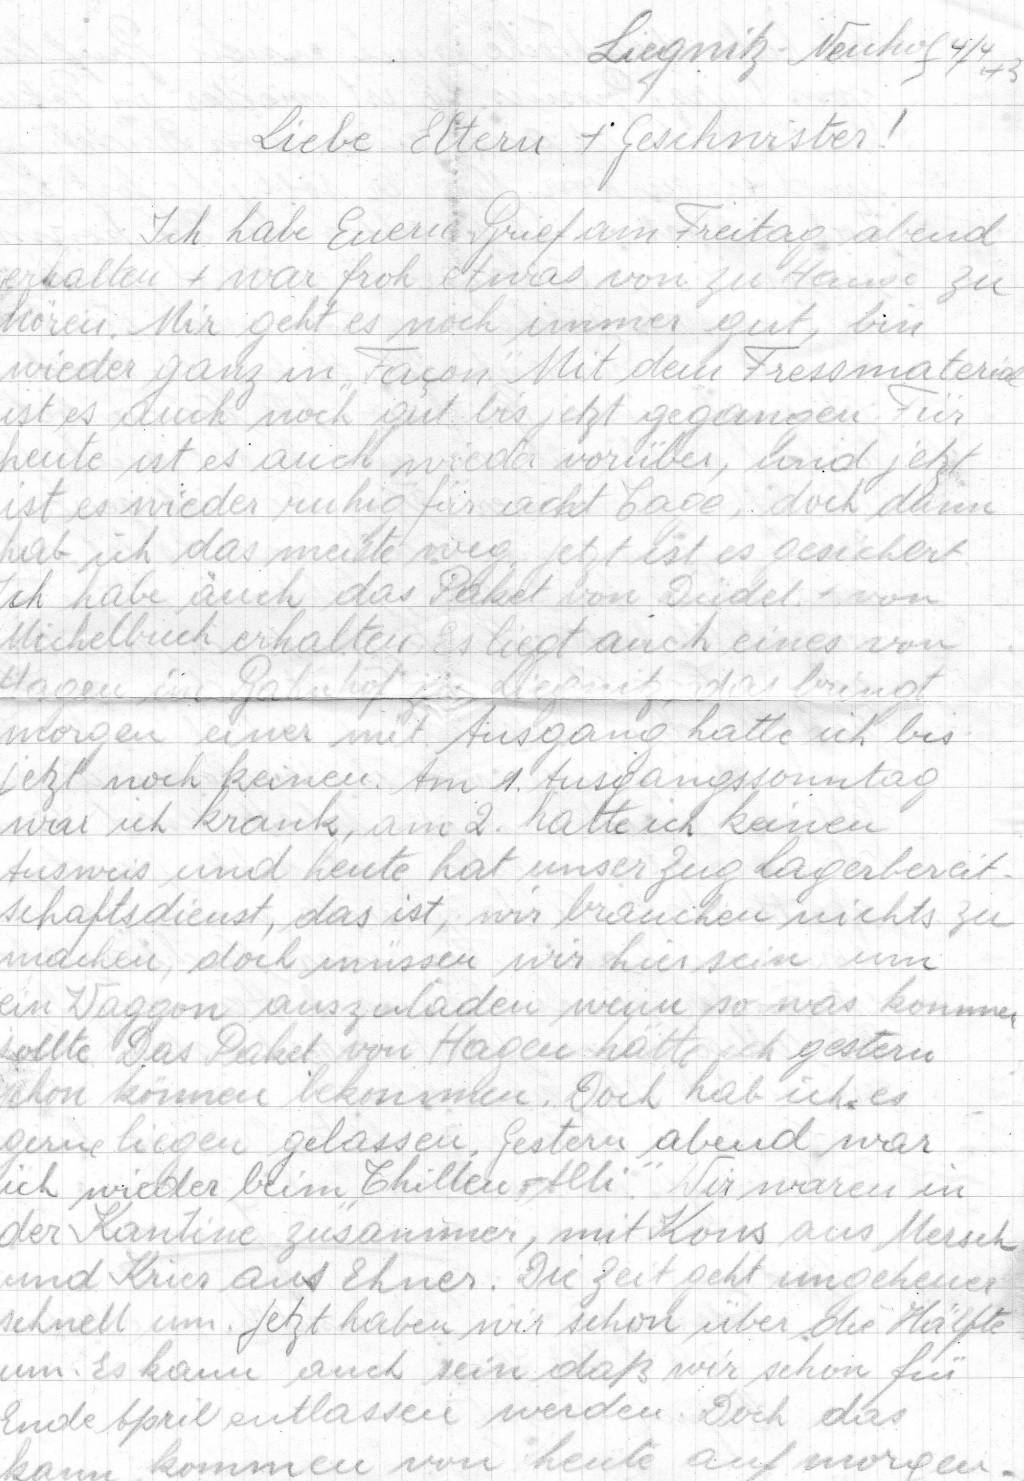 Liegnitz-Neuhof 4/4 43
Liebe Eltern + Geschwister!
Ich habe Eueren Brief am Freitag abend
erhalten + war froh etwas von zu Hause zu
hören. Mir geht es noch immer gut, bin
wieder ganz in "Façon". Mit dem Fressmaterial
ist es auch noch gut bis jetzt gegangen. Für
heute ist es auch wieder vorüber, und jetzt
ist es wieder ruhig für acht Tage, doch dann
hab ich das meiste weg, jetzt ist es gesichert.
Ich habe auch das Paket von Düdel. + von
Michelbuch erhalten. Es liegt auch eines von
Hagen im Bahnhof in Liegnitz, das bringt
morgen einer mit. Ausgang hatte ich bis
jetzt noch keinen. Am 1. Ausgangssonntag
war ich krank, am 2. hatte ich keinen
Ausweis und heute hat unser Zug Lagerbereit-
schaftsdienst, das ist, wir brauchen nichts zu
machen, doch müssen wir hier sein um
ein Waggon auszuladen wenn so was kommen
sollte. Das Paket von Hagen hätte ich gestern
schon können bekommen. Doch hab ich es
gerne liegen gelassen. Gestern abend war
ich wieder beim Thillen "Alli". Wir waren in
der Kantine zusammen, mit Kons aus Mersch
und Krier aus Ehner. Die Zeit geht ungeheuer
schnell um. Jetzt haben wir schon über die Hälfte
um. Es kann auch sein daß wir schon für
Ende April entlassen werden. Doch das
kann kommen von heute auf morgen.